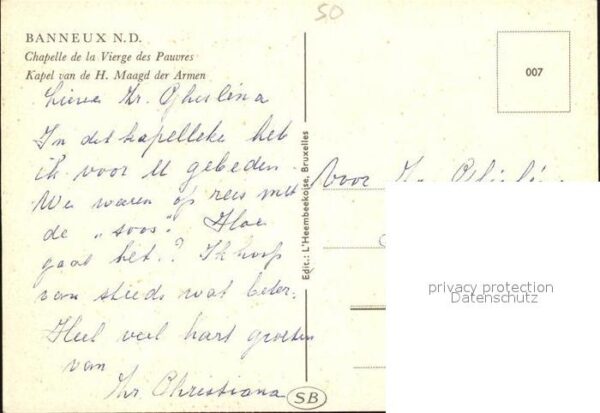 50
BANNEUX N.D.
Chapelle de la Vierge des Pauvres
Kapel van de H. Maagd der Armen
007
Lieve Zr. Ghislina
In dit kapelleke heb
ik voor U gebeden.
We waren op reis met
de „soos". Hoe
gaat het? Ik hoop
van steeds wat beter.
Heel veel hart groeten
van
Zr Christiana
Edit.: L'Heembeekoise, Bruxelles
Voor Zr
SB
privacy protection
Datenschutz